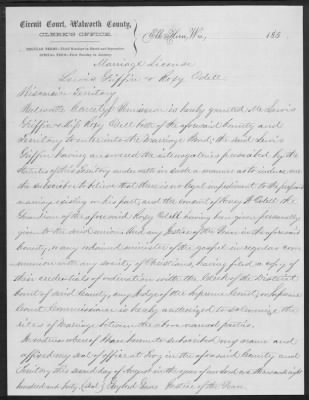 Circuit Court, Walworth County,
CLERK'S OFFICE.
REGULAR TERMS—First Mondays in and September
SPECIAL TERM—First Monday in January
Elkhorn, Wis., 186
Marriage License
Lewis Giffin & Roxy Odell
Wisconsin Territory
Walworth County Permission is hereby granted Mr Lewis
Giffin & Miss Roxy Odell both of the aforesaid County and
Territory to enter into the marriage Bond; the said Lewis
Giffin having answered the interrogatories prescribed by the
Statutes of this territory under oath in such a manner as to induce me
the subscriber to believe that there is no legal impediment to the proposed
marriage existing on his part, and the consent of Odell the
Guardian of the aforesaid Roxy Odell having been given personally
given to the said union. And any Justice of the Peace in the aforesaid
County, or any ordained minister of the gospel in regular com
munion with any society of Christians, having filed a copy of
their credentials of ordination with the Clerk of the District
Court of said County, any Judge of the Supreme Court, or Supreme
Court Commissioner is hereby authorized to solemnize the
rites of marriage between the above named parties.
In witness whereof I have hereunto subscribed my name and
affixed my seal of office at Troy in the aforesaid County and
Territory this second day of August in the year of our Lord one thousand eight
hundred and forty. (Seal) Justice of the Peace.